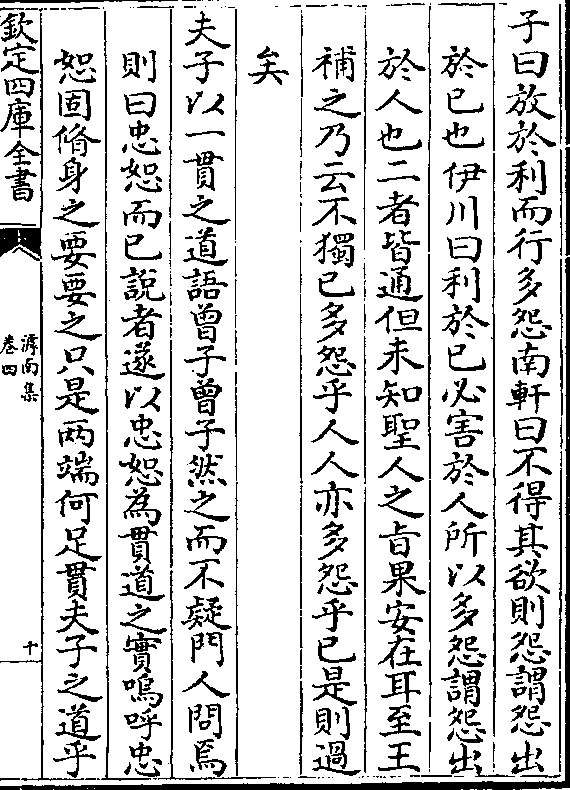 子曰放於利而行多怨南軒曰不得其欲則怨謂怨出
於已也伊川曰利於已必害於人所以多怨謂怨出
於人也二者皆通但未知聖人之㫖果安在耳至王
補之乃云不獨已多怨乎人人亦多怨乎已是則過
矣
夫子以一貫之道語曾子曾子然之而不疑門人問焉
則曰忠恕而已説者遂以忠恕為貫道之實嗚呼忠
恕固脩身之要要之只是兩端何足貫夫子之道乎
欽定四庫全書
滹南集
卷四
十